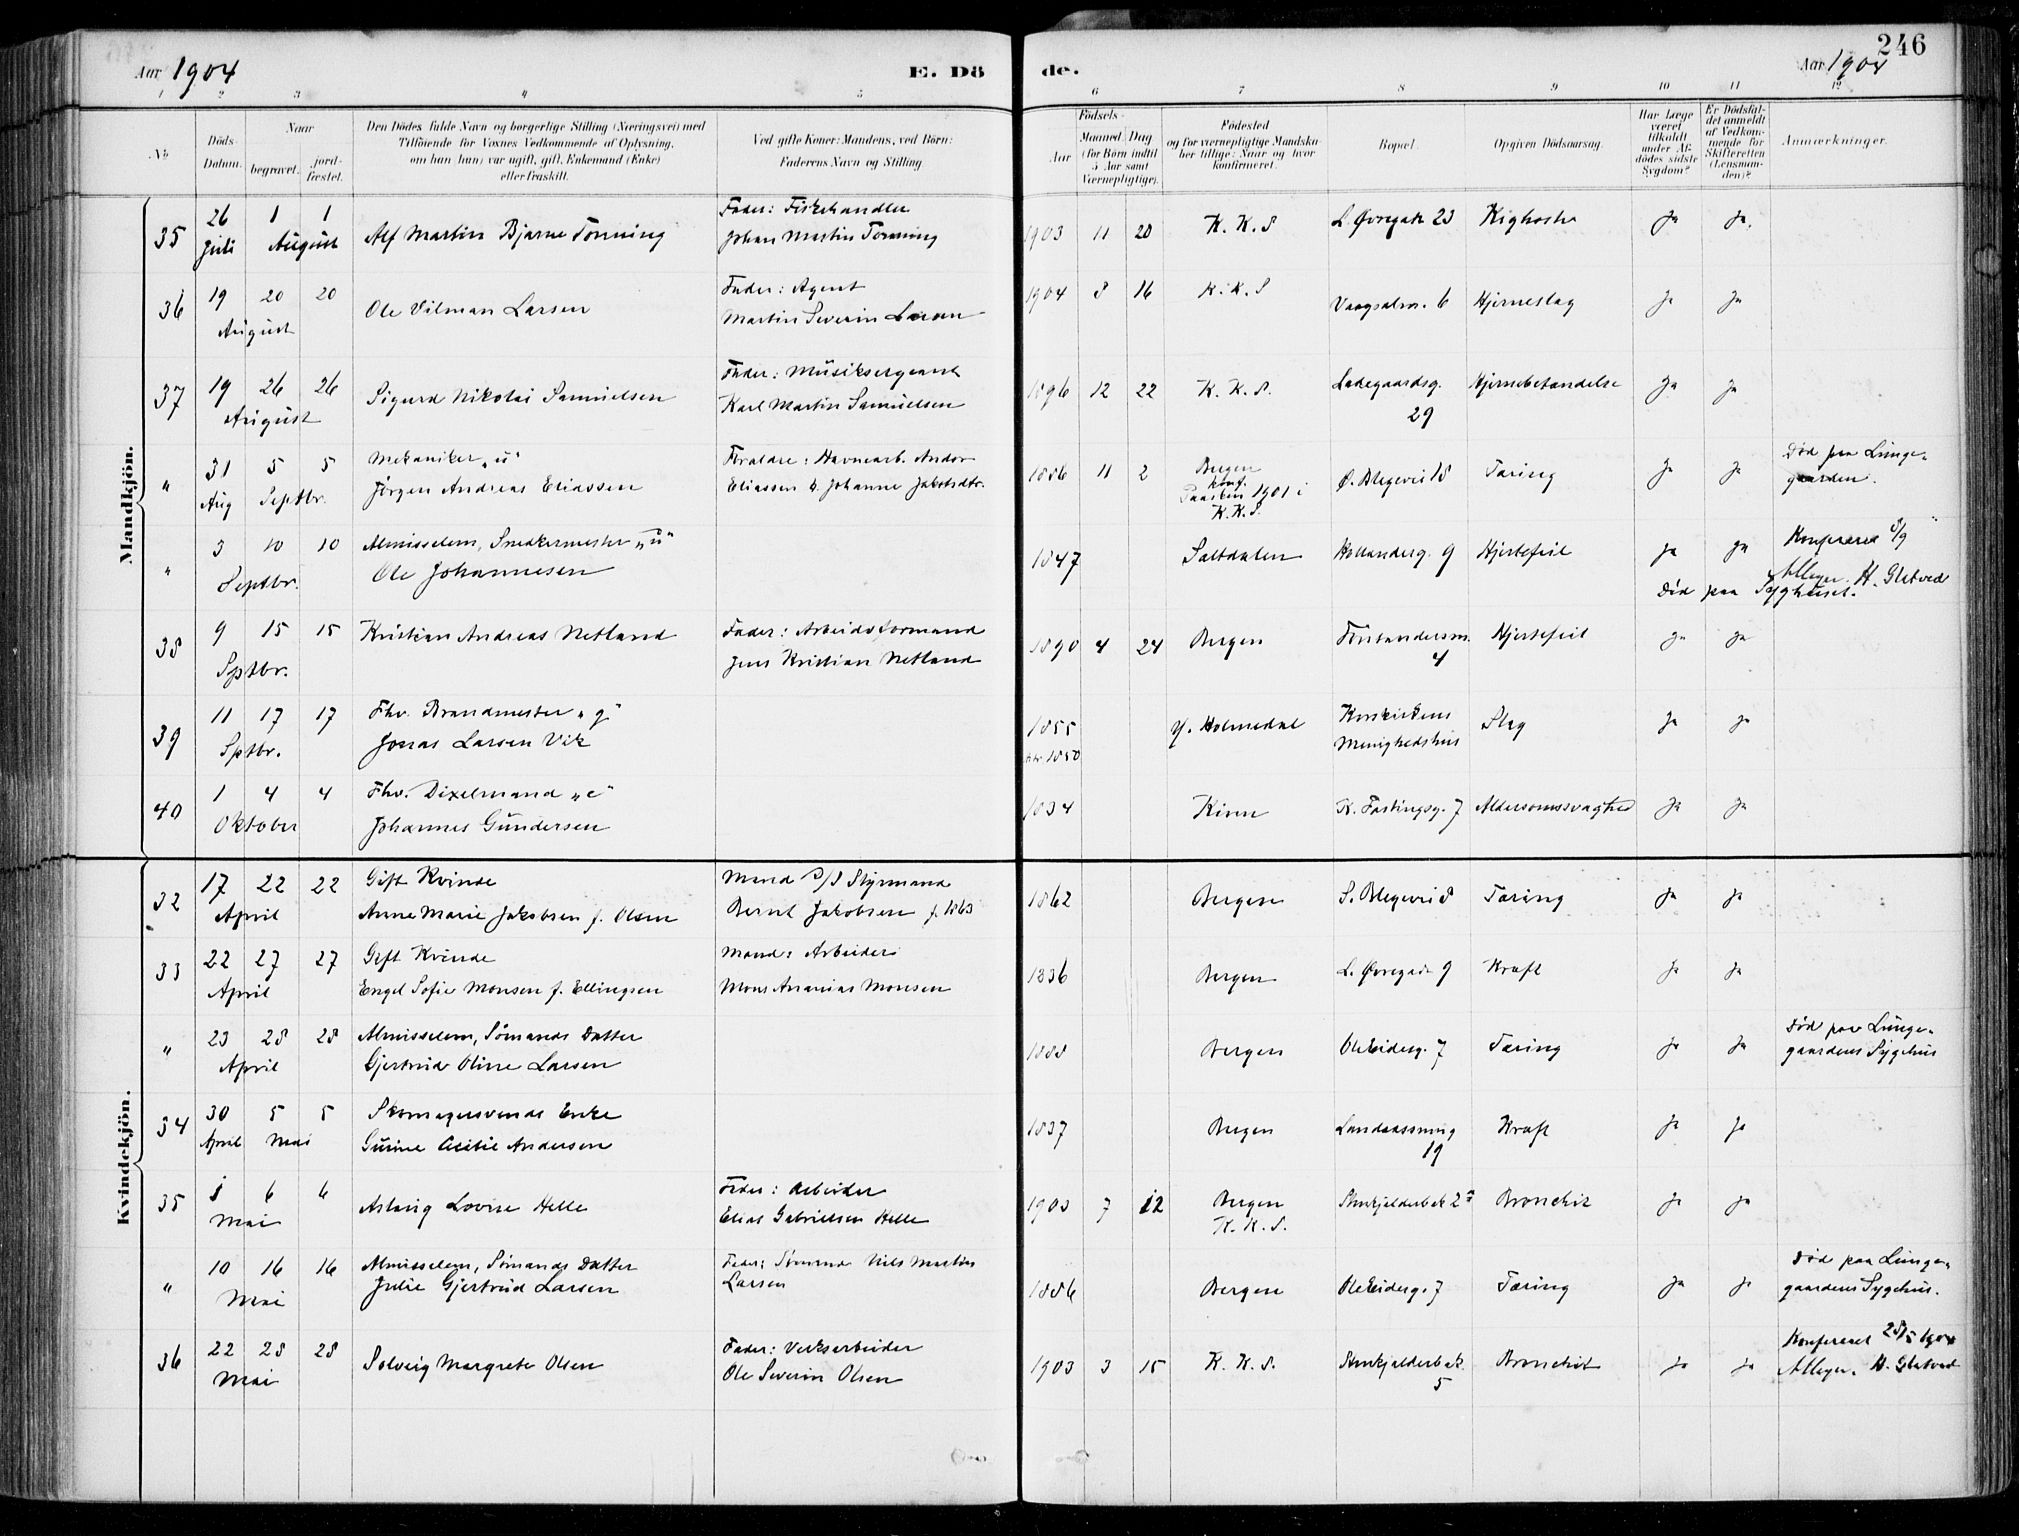 246
Aar 1904 E. Dö de. Aar 1904
1 2 3 4 5 6 7 8 9 10 11 12
No.
Döds-
Datum.
Naar
begravet.
jord-
fæstet.
Den Dödes fulde Navn og borgerlige Stilling (Næringsvei) med
Tilföiende for Voxnes Vedkommende af Oplysning,
om han (hun) var ugift, gift, Enkemand (Enke)
eller fraskilt.
Ved gifte Koner: Mandens, ved Börn:
Faderens Navn og Stilling
Födsels-
Aar
Maaned
Dag
(for Börn indtil
5 Aar samt
Værnepligtige).
Födested
og for værnepligtige Mandska-
ber tillige: Naar og hvor
konfirmeret.
Bopæl.
Opgiven Dödsaarsag.
Har Læge
været
tilkaldt
under Af-
dödes sidste
Sygdom?
Er Dödsfal-
det anmeldt
af Vedkom-
mende for
Skifteretten
(Lensman-
den)?
Anmærkninger.
Mandkjön.
35 26 1 1 Fader: Fiskehandler
Juli August Alf Martin Bjarne Tonning Johan Martin Tonning 1903 11 20 K. K. S L. Øvregate 23 Kighoste Ja Ja.
36 19 20 20 Fader: Agent
August Ole Vilman Larsen Martin Severin Larsen 1904 8 16 K. K. S Vaagsalm. 6 Hjerneslag Ja Ja
37 19 26 26 Fader: Musiksergeant
August Sigurd Nikolai Samuelsen Karl Martin Samuelsen 1896 12 22 K. K. S. Ladegaardsg. 29 Hjernebetændelse Ja Ja
" 31 5 5 Mekaniker „u" Foraldre: Havnearb. Andor
Aug Septbr. Jörgen Andreas Eliassen Eliassen & Johanne Jakobsdtr. 1886 11 2 Bergen
konf.
Paasken 1901 i
K. K. S. Ø. Blegevei 18 Taring Ja Ja Død paa Lunge-
gaarden.
" 3 10 10 Almisselem, Snedkermester „u"
Septbr. Ole Johannesen 1847 Saltdalen Hollanderg. 9 Hjertefeil Ja Ja Konfereret 8/9
A Meyer. H. Gletved
Død paa Sygehuset.
38 9 15 15 Kristian Andreas Netland Fader: Arbeidsformand
Sptbr. Jens Kristian Netland 1890 4 24 Bergen Forstandersm. 4 Hjertefeil Ja Ja
39 11 17 17 Fhv. Brandmester „g"
Sptbr. Jonas Larsen Vik 1855
1850 Y. Holmedal Korskirkens
Menighedshus Slag Ja Ja
40 1 4 4 Fhv. Dixelmand „e"
Oktober Johannes Gundersen 1834 Kinn K. Fastingsg. 7 Aldersomssvaghed Ja Ja
Kvindekjön.
32 17 22 22 Gift Kvinde Mand D/S Styrmand
April Anne Marie Jakobsen f. Olsen Bernt Jakobsen f. 1863 1862 Bergen S. Blegevei 8 Taring Ja Ja
33 22 27 27 Gift Kvinde Mand: Arbeider
April Engel Sofie Monsen f. Ellingsen Mons Ananias Monsen 1836 Bergen L. Øvregade 9 Kraft Ja Ja
" 23 28 28 Almisselem, Sømands Datter
April Gjertrud Oline Larsen 1888 Bergen Ole Eidesg. 7 Tæring Ja Ja Død paa Lunge-
gaardens Sygehus
34 30 5 5 Skomagersvends Enke
April Mai Gurine Cecilie Andersen 1837 Bergen Landaassvning 19 Kraft Ja Ja
35 1 6 6 Fader: Arbeider
Mai Aslaug Lovise Helle Elias Gabrielsen Helle 1903 7 12 Bergen
K. K. S. Stenkjelderbak 2a Bronchit Ja Ja
" 10 16 16 Almisselem, Sømands Datter Fader: Sømand Nils Martin
Mai Julie Gjertrud Larsen Larsen 1886 Bergen Ole Eidesg. 7 Tæring Ja Ja Død paa Lunge-
gaardens Sygehus.
36 22 28 28 Fader: Verksarbeider
Mai Solveig Margrete Olsen Ole Severin Olsen 1903 3 15 K. K. S. Stenkjelderbak. 5 Bronchit Ja Ja Konfereret 28/5 1904
A Meyer. H. Gletved